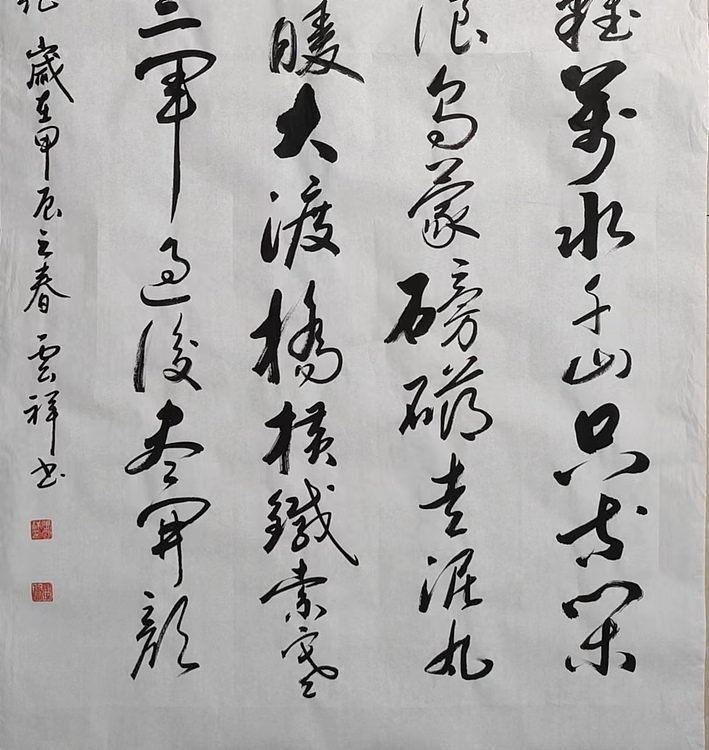 難萬水千山只等閑
浪烏蒙磅礴走泥丸
暖大渡橋橫鐵索寒
三軍過後盡開顏
歲在甲辰立春雲祥書